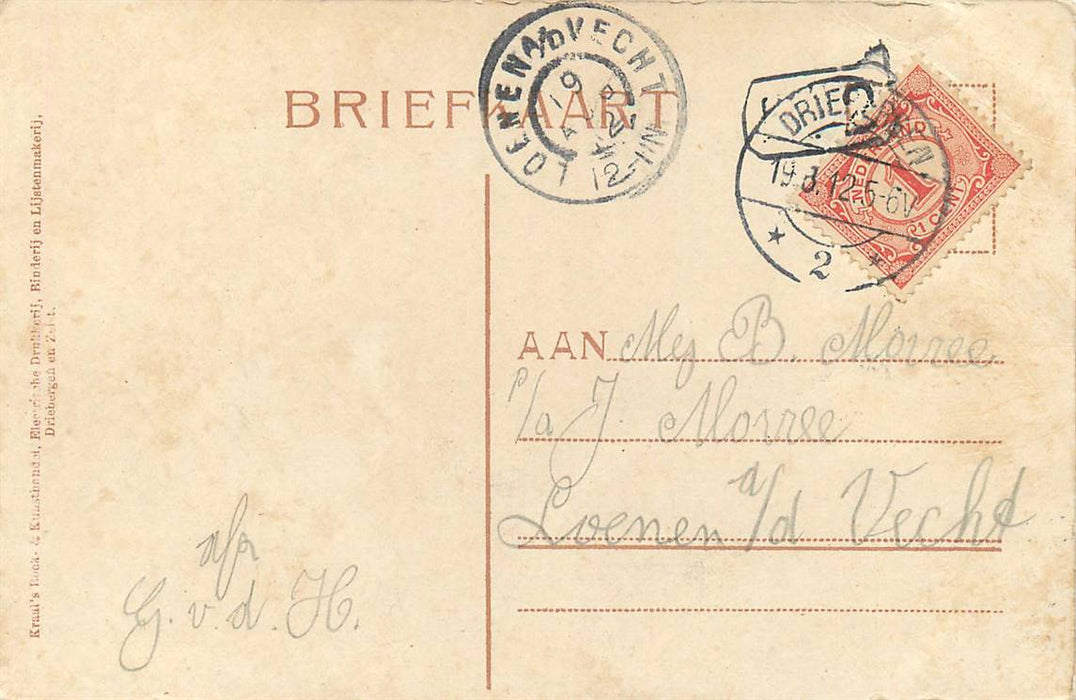 BRIEFKAART
LOENEN A/D VECHT
19
12
12-1N
DRIEBERGEN
19.8.12.5-6V
2
NEDERLAND
1
1 CENT
AAN Mej B. Morree.
p/a J. Morree
Loenen a/d Vecht
afz
G. v. d. H.
Kraal's Boek- & Kunsthandel, Electrische Drukkerij, Binderij en Lijstenmakerij,
Driebergen en Zeist.